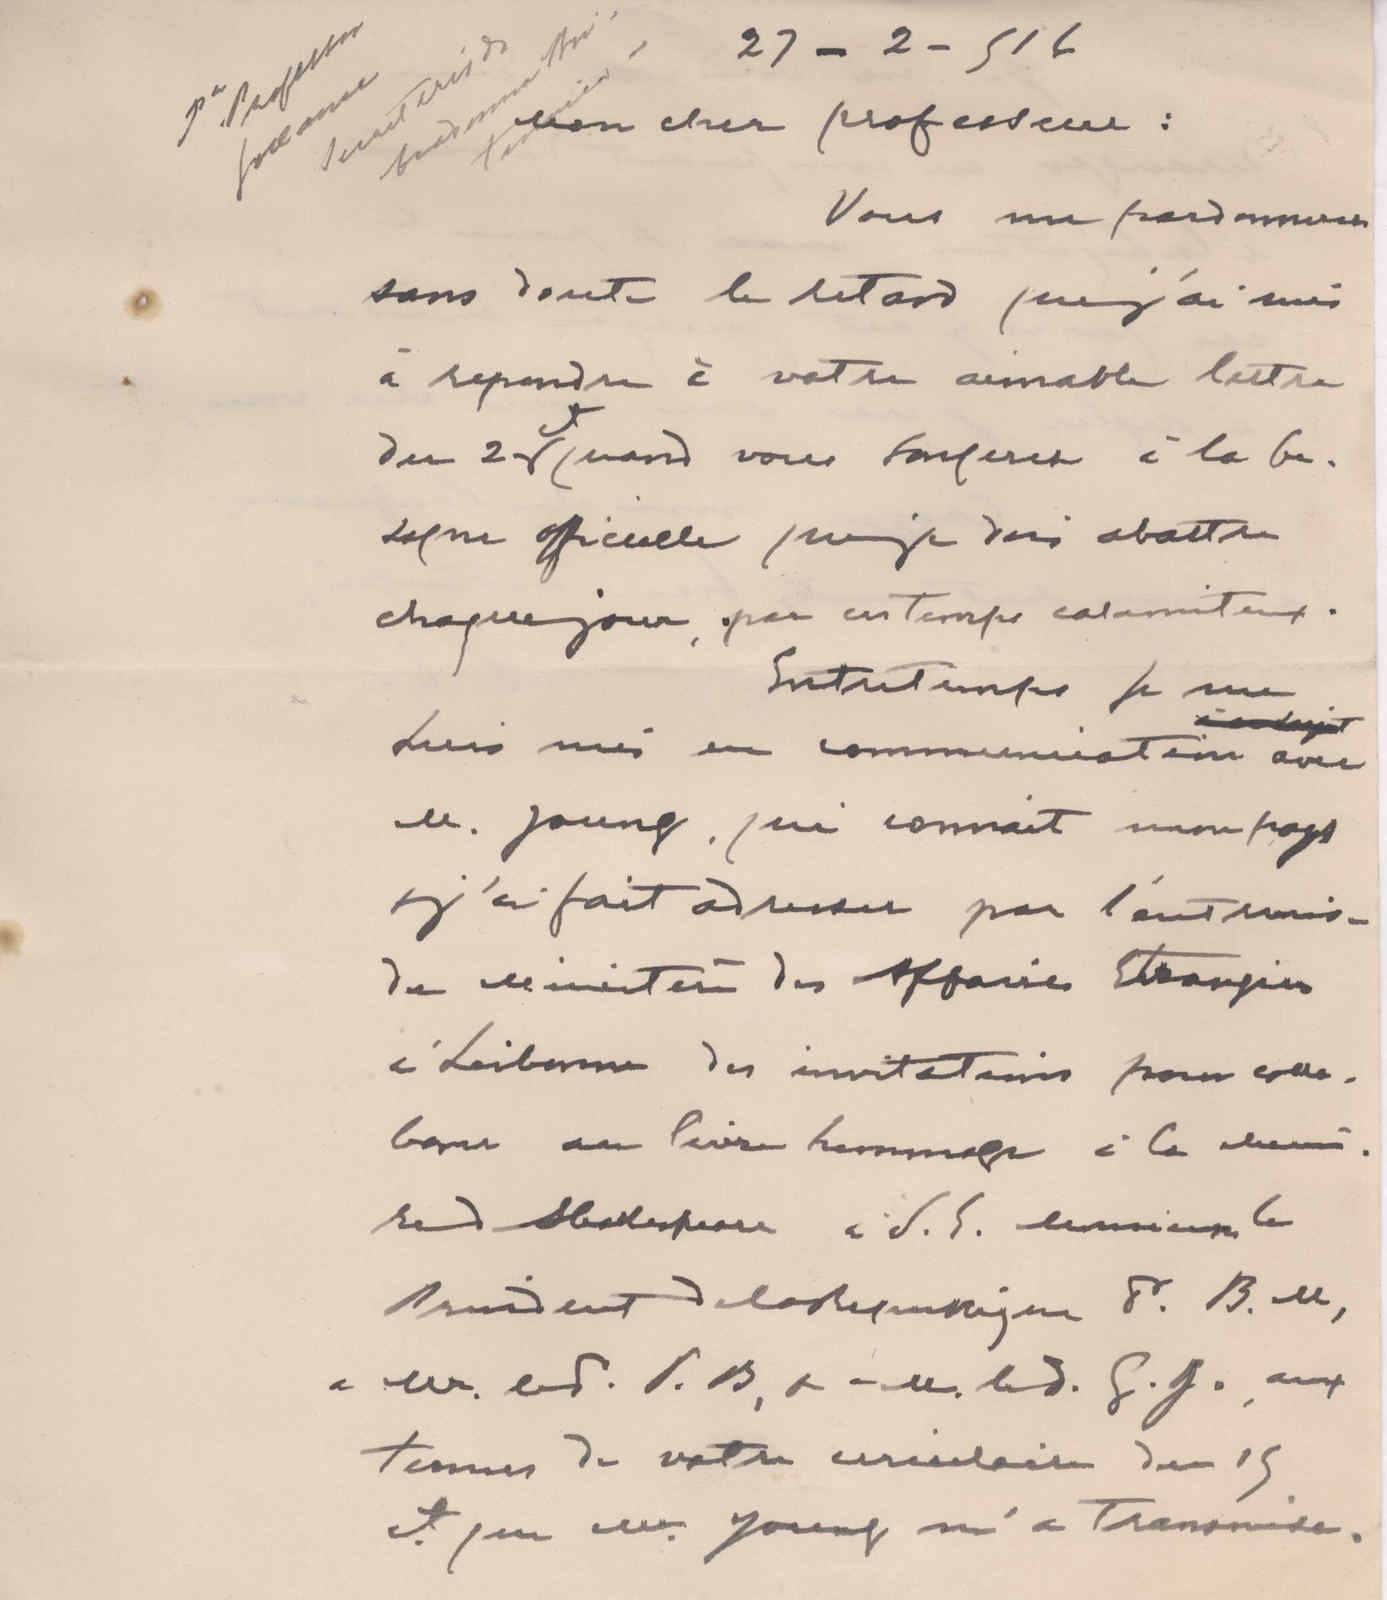 Pª Professor
27 – 2 – 916
Mon cher professeur :
Vous me pardonnerez
sans doute le retard que j'ai mis
à repondre à votre aimable lettre
du 2 ct quand vous songerez à la be-
sogne officielle que je dois abattre
chaque jour, par ces temps calamiteux.
Entretemps je me
suis mis en communication avec
M. Young, qui connait mon pays
et j'ai fait adresser par l'entremis-
du Ministère des Affaires Etrangères
à Lisbonne des invitations pour colla-
borer au livre hommage à la memoi-
re d Shakespeare a S. E. Monsieur le
President de la Republique Dr. B. M,
a Mr. le d. T. B, et a M. le d. G. J., aux
termes de votre circulaire du 15
ct. que Mr. Young m'a transmise.